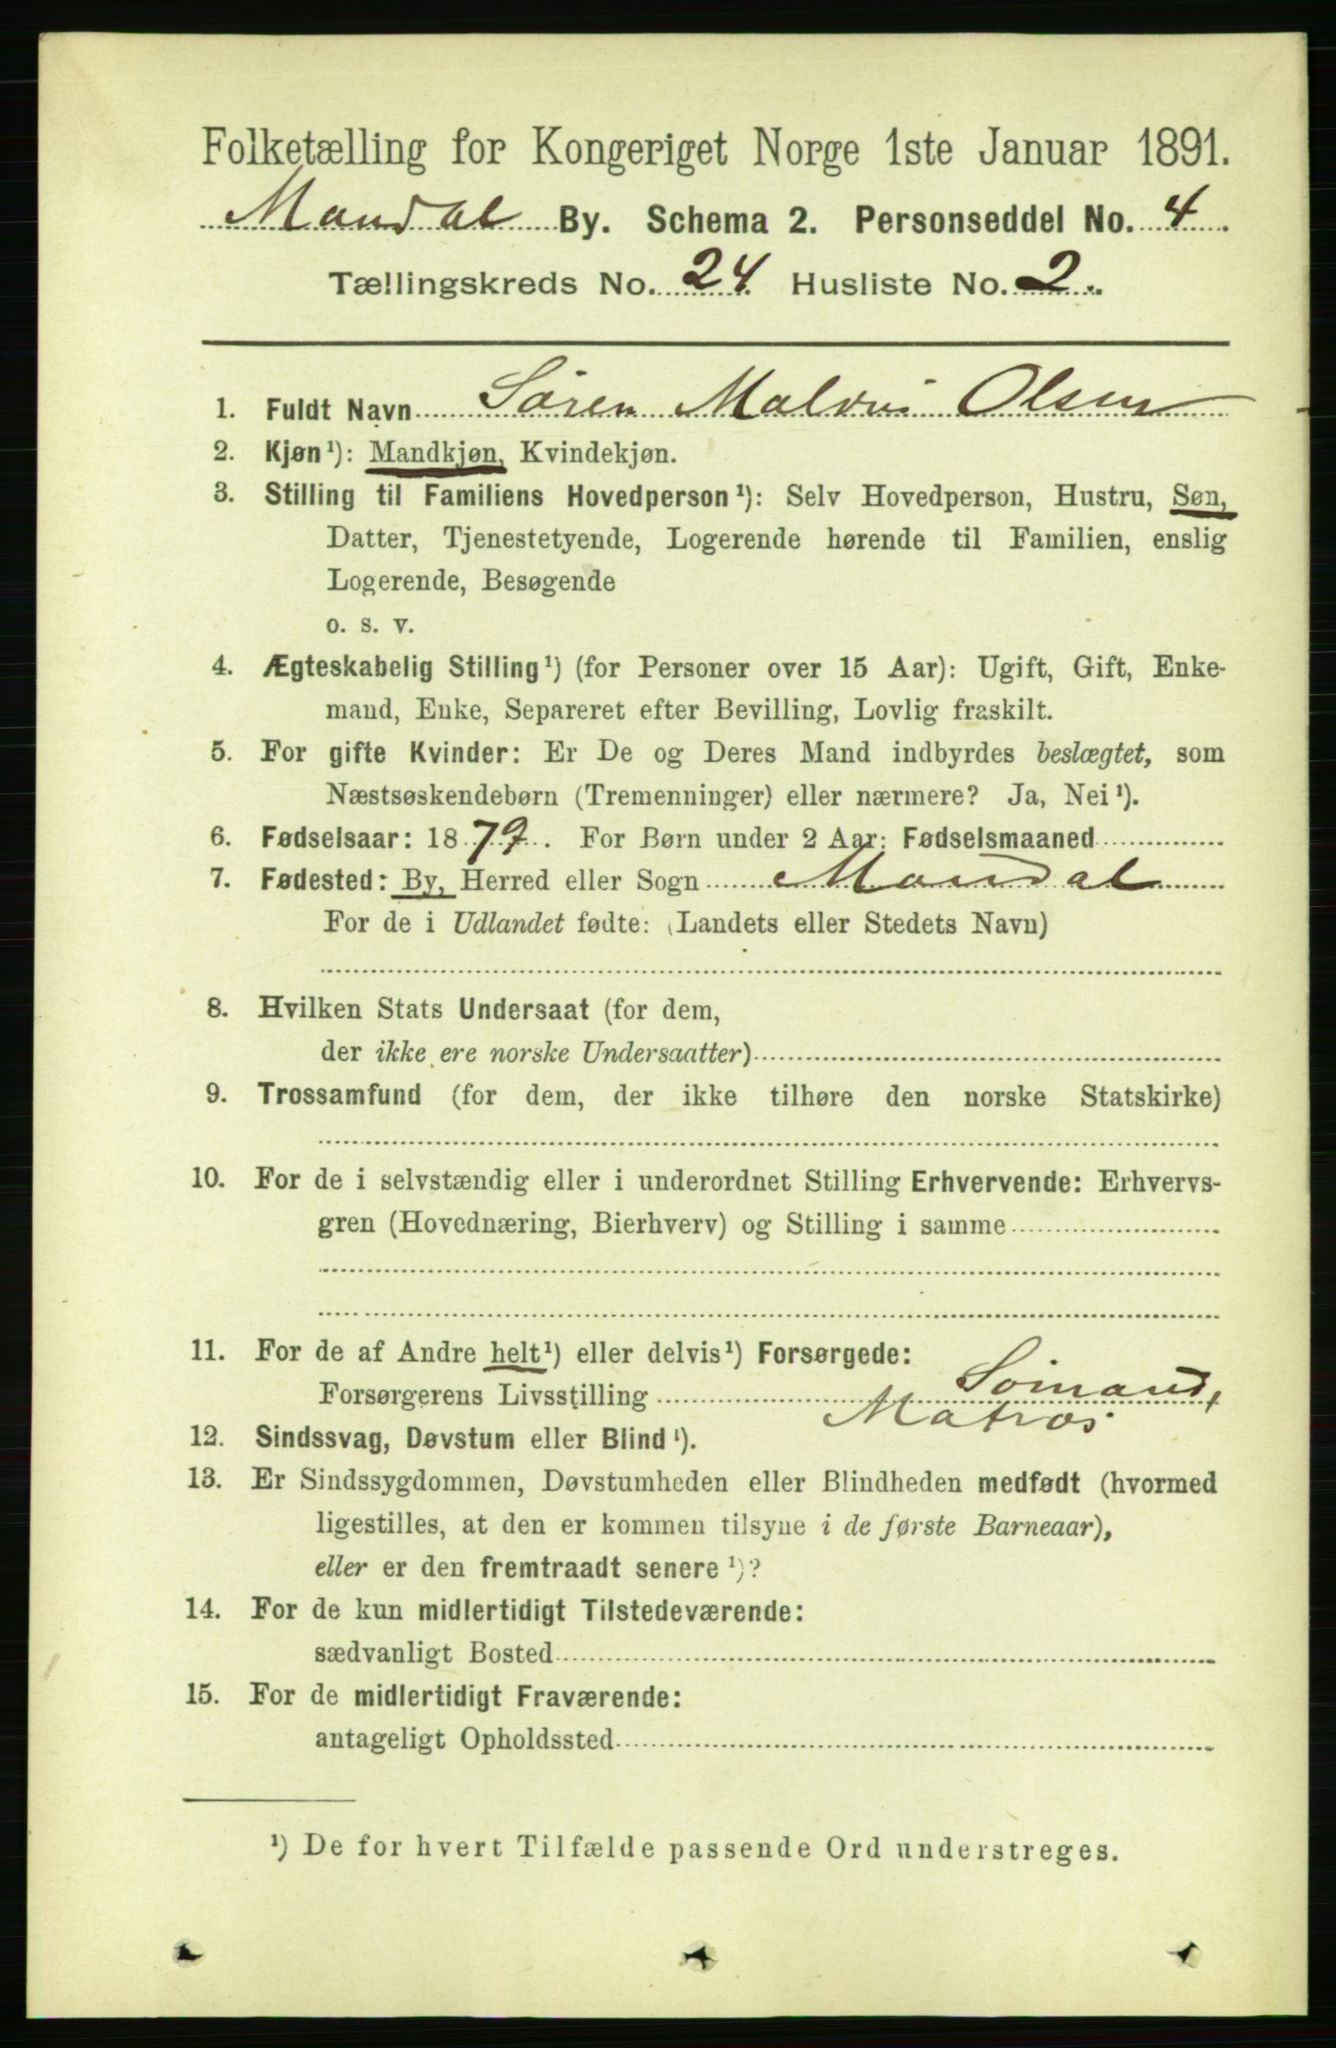 Folketælling for Kongeriget Norge 1ste Januar 1891.
Mandal By. Schema 2. Personseddel No. 4.
Tællingskreds No. 24 Husliste No. 2.
1. Fuldt Navn Søren Olsen
2. Kjøn¹): Mandkjøn, Kvindekjøn.
3. Stilling til Familiens Hovedperson¹): Selv Hovedperson, Hustru, Søn,
Datter, Tjenestetyende, Logerende hørende til Familien, enslig
Logerende, Besøgende
o. s. v.
4. Ægteskabelig Stilling¹) (for Personer over 15 Aar): Ugift, Gift, Enke-
mand, Enke, Separeret efter Bevilling, Lovlig fraskilt.
5. For gifte Kvinder: Er De og Deres Mand indbyrdes beslægtet, som
Næstsøskendebørn (Tremenninger) eller nærmere? Ja, Nei¹).
6. Fødselsaar: 1879. For Børn under 2 Aar: Fødselsmaaned
7. Fødested: By, Herred eller Sogn Mandal
For de i Udlandet fødte: (Landets eller Stedets Navn)
8. Hvilken Stats Undersaat (for dem,
der ikke ere norske Undersaatter)
9. Trossamfund (for dem, der ikke tilhøre den norske Statskirke)
10. For de i selvstændig eller i underordnet Stilling Erhvervende: Erhvervs-
gren (Hovednæring, Bierhverv) og Stilling i samme
11. For de af Andre helt¹) eller delvis¹) Forsørgede:
Forsørgerens Livsstilling Sømand,
Matros
12. Sindssvag, Døvstum eller Blind¹).
13. Er Sindssygdommen, Døvstumheden eller Blindheden medfødt (hvormed
ligestilles, at den er kommen tilsyne i de første Barneaar),
eller er den fremtraadt senere¹)?
14. For de kun midlertidigt Tilstedeværende:
sædvanligt Bosted
15. For de midlertidigt Fraværende:
antageligt Opholdssted
¹) De for hvert Tilfælde passende Ord understreges.